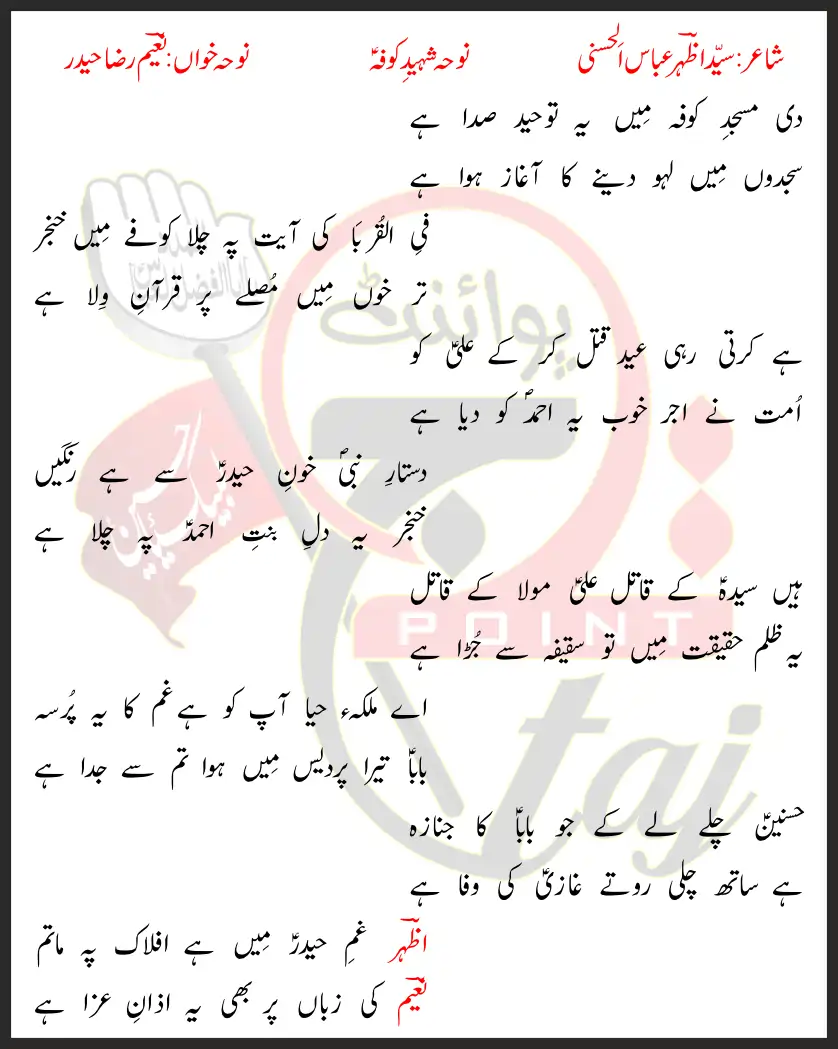 شاعر: سیّد اظہر عباس الحسنی نوحہ شہیدِ کوفہؑ نوحہ خواں: نعیم رضا حیدر
دی مسجدِ کوفہ مِیں یہ توحید صدا ہے
سجدوں مِیں لہو دینے کا آغاز ہوا ہے
فیِ القُربَا کی آیت پہ چلا کوفے مِیں خنجر
تر خوں مِیں مُصلے پر قرآنِ وِلا ہے
ہے کرتی رہی عید قتل کر کے علیؑ کو
اُمت نے اجر خوب یہ احمدؐ کو دیا ہے
دستارِ نبیؐ خونِ حیدرؑ سے ہے رنگیں
خنجر یہ دلِ بنتِ احمدؐ پہ چلا ہے
ہیں سیدہؑ کے قاتل علیؑ مولا کے قاتل
یہ ظلم حقیقت مِیں تو سقیفہ سے جُڑا ہے
اے ملکہء حیا آپ کو ہے غم کا یہ پُرسہ
باباؑ تیرا پردیس مِیں ہوا تم سے جدا ہے
حسنینؑ چلے لے کے جو باباؑ کا جنازہ
ہے ساتھ چلی روتے غازیؑ کی وفا ہے
اظہر غمِ حیدرؑ مِیں ہے افلاک پہ ماتم
نعیم کی زباں پر بھی یہ اذانِ عزا ہے
پوائنٹ
POINT
taj